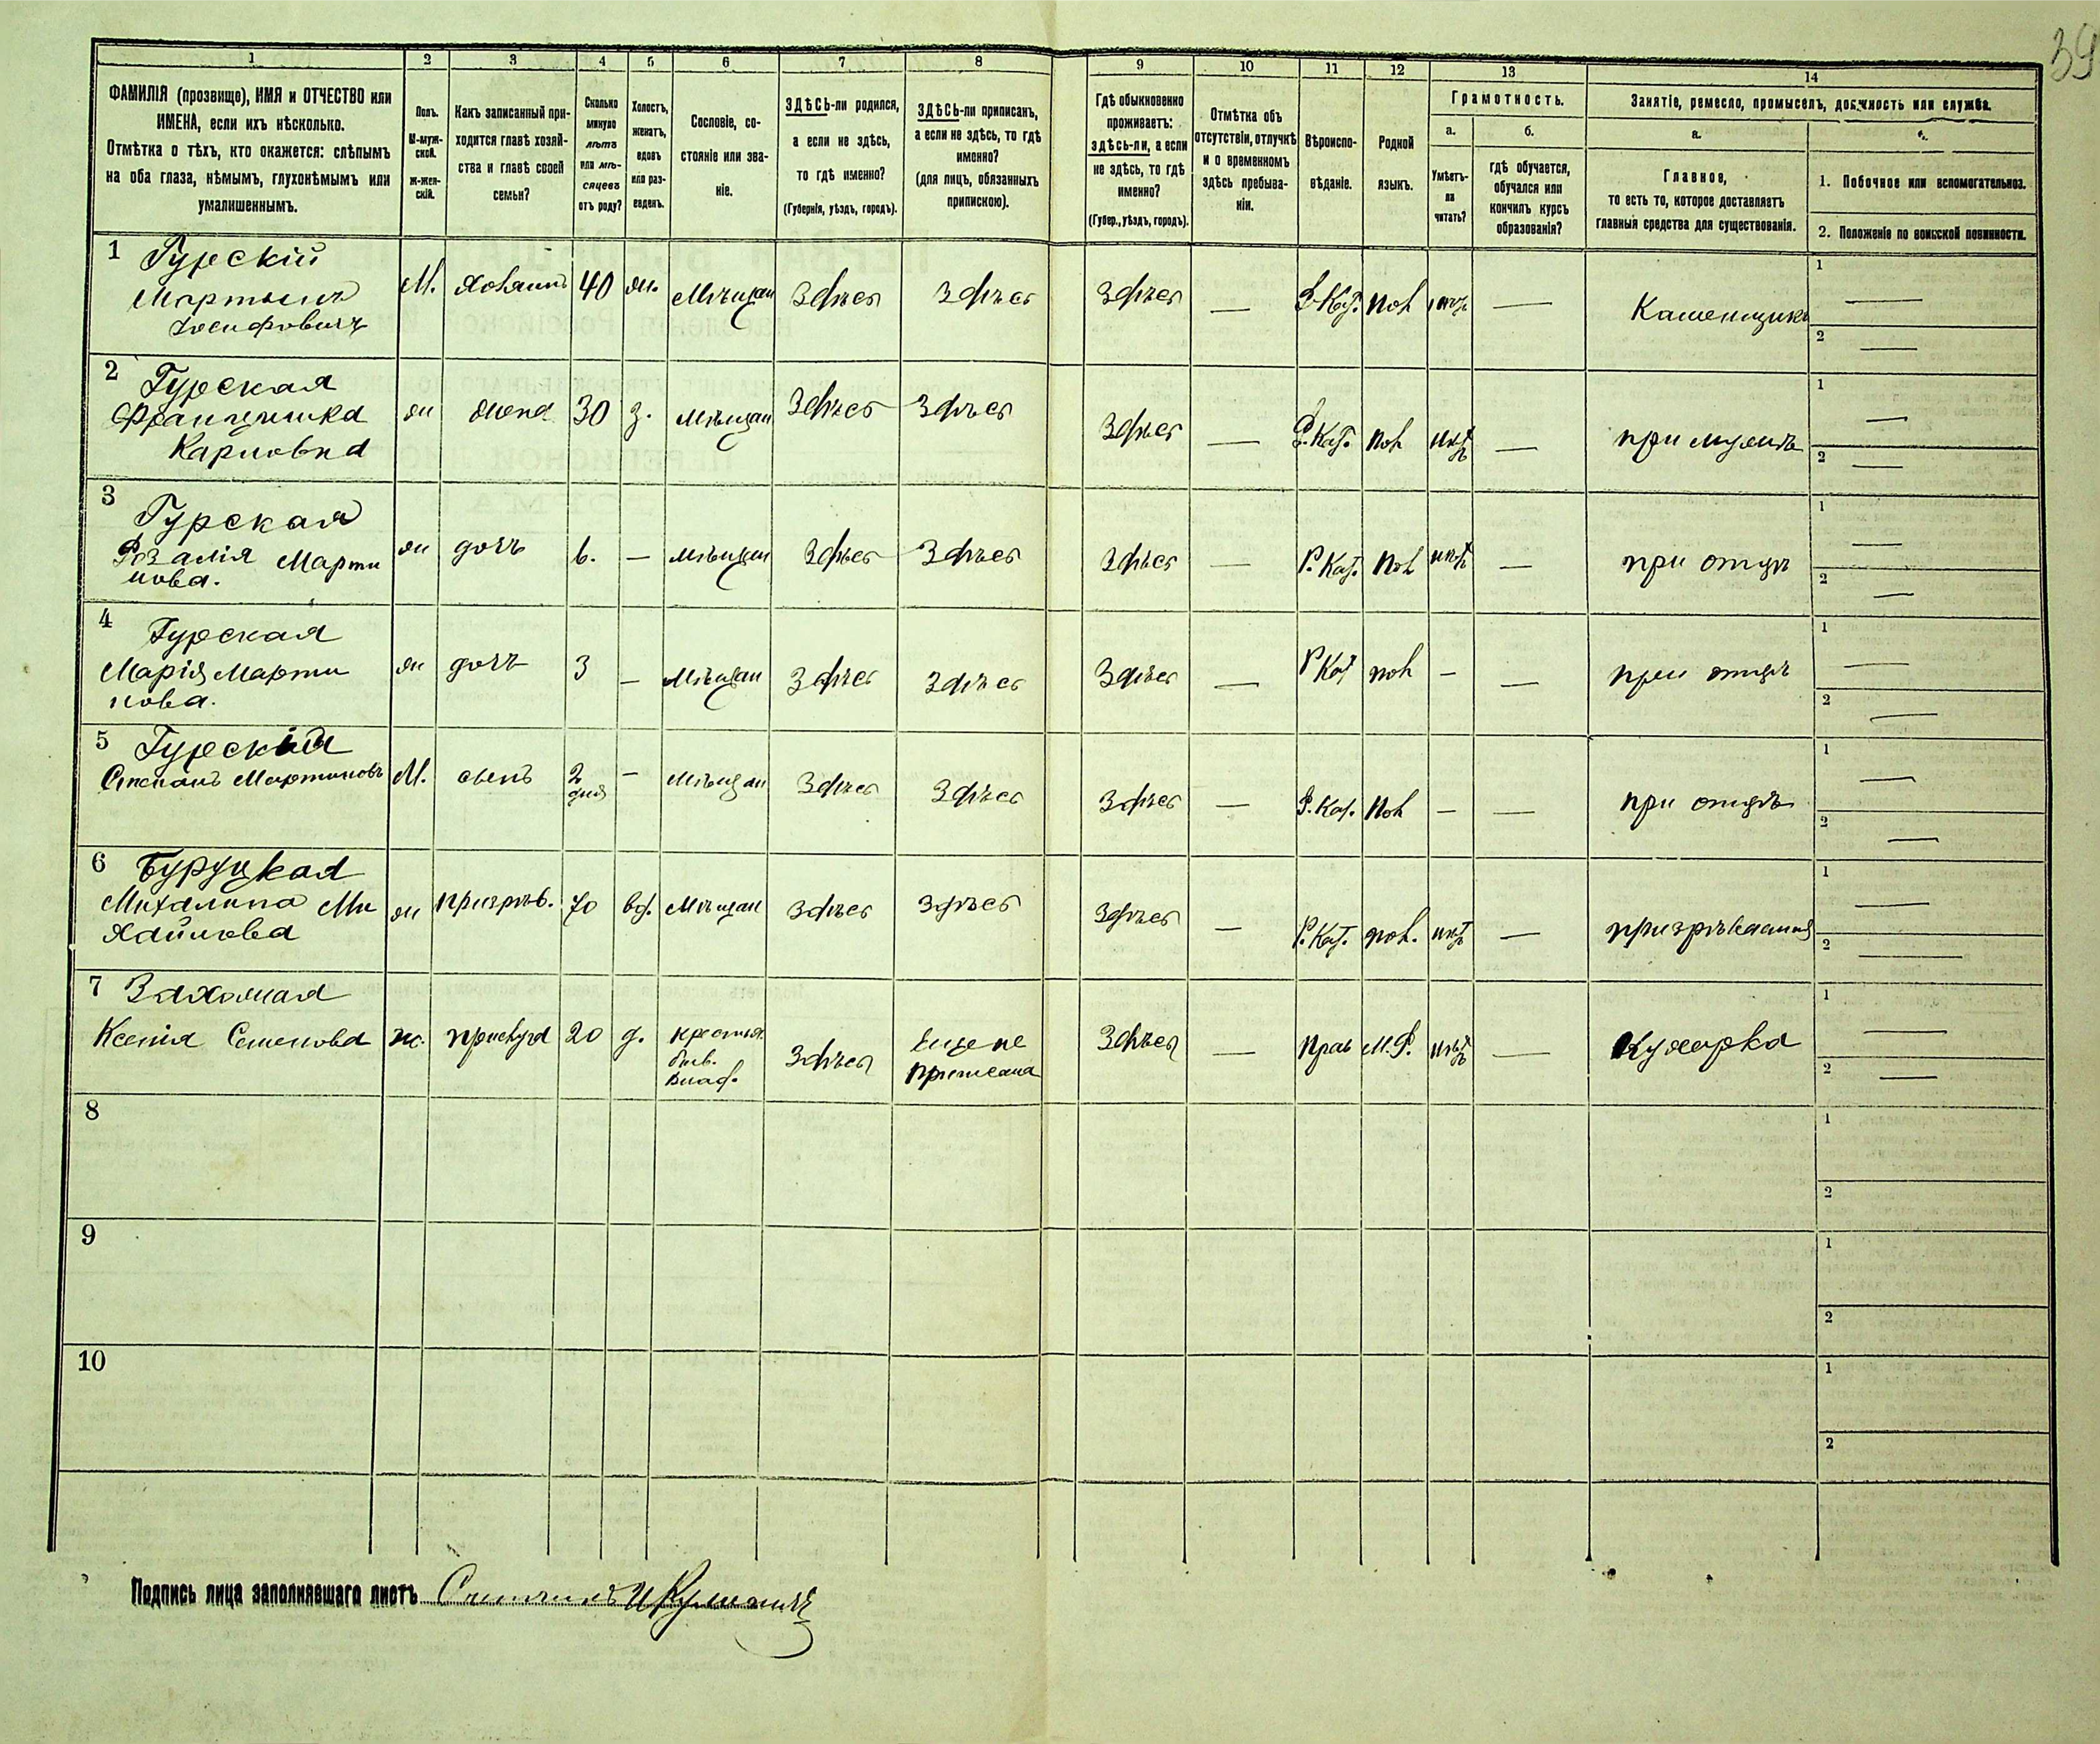 39
1 2 3 4 5 6 7 8 9 10 11 12 13 14
ФАМИЛІЯ (прозвище), ИМЯ и ОТЧЕСТВО или
ИМЕНА, если ихъ нѣсколько.
Отмѣтка о тѣхъ, кто окажется: слѣпымъ
на оба глаза, нѣмымъ, глухонѣмымъ или
умалишеннымъ.
Полъ.
М-муж-
ской.
Ж-жен-
скій.
Какъ записанный при-
ходится главѣ хозяй-
ства и главѣ своей
семьи?
Сколько
минуло
лѣтъ
или мѣ-
сяцевъ
отъ роду?
Холостъ,
женатъ,
вдовъ
или раз-
веденъ.
Сословіе, со-
стояніе или зва-
ніе.
ЗДѢСЬ-ли родился,
а если не здѣсь,
то гдѣ именно?
(Губернія, уѣздъ, городъ).
ЗДѢСЬ-ли приписанъ,
а если не здѣсь, то гдѣ
именно?
(для лицъ, обязанныхъ
припискою).
Гдѣ обыкновенно
проживаетъ:
здѣсь-ли, а если
не здѣсь, то гдѣ
именно?
(Губер., уѣздъ, городъ).
Отмѣтка объ
отсутствіи, отлучкѣ
и о временномъ
здѣсь пребыва-
ніи.
Вѣроиспо-
вѣданіе.
Родной
языкъ.
Грамотность.
а.
Умѣетъ-
ли
читать?
б.
гдѣ обучается,
обучался или
кончилъ курсъ
образованія?
Занятіе, ремесло, промыселъ, должность или служба.
а.
Главное,
то есть то, которое доставляетъ
главныя средства для существованія.
1. Побочное или вспомогательное.
2. Положеніе по воинской повинности.
1 Гурскій
Мартынъ
Іосифовичъ
М. хозяинъ 40 ж. Мѣщан Здѣсь Здѣсь Здѣсь — Р. Кат. Пол — Каменщикъ
1 —
2 —
2 Гурская
Францишка
Карловна
ж жена 30 з. мѣщан Здѣсь Здѣсь Здѣсь — Р. Кат. Пол нѣтъ — при мужѣ
1 —
2 —
3 Гурская
Розалія Марти
нова.
ж дочь 6. — мѣщан Здѣсь Здѣсь Здѣсь — Р. Кат. Пол нѣтъ — при отцѣ
1 —
2 —
4 Гурская
Марія Марти
нова.
ж дочь 3 — Мѣщан Здѣсь Здѣсь Здѣсь — Р Кат пол — — при отцѣ
1 —
2 —
5 Гурскій
Степанъ Мартиновъ
М. сынъ 2 дня — Мѣщан Здѣсь Здѣсь Здѣсь — Р. Кат. Пол — — при отцѣ
1 —
2 —
6 Буруцкая
Михалина Ми
хайлова
ж призрѣв. 70 вд. Мѣщан Здѣсь Здѣсь Здѣсь — Р. Кат. пол. нѣтъ —
1 —
2 —
7
Ксенія Семенова
ж. прислуга 20 д. крестьян.
быв.
влад.
Здѣсь
еще не
приписана
Здѣсь — Прав М. Р. нѣтъ — Кухарка
1 —
2 —
8
1
2
9
1
2
10
1
2
Подпись лица заполнявшаго листъ Счетчикъ